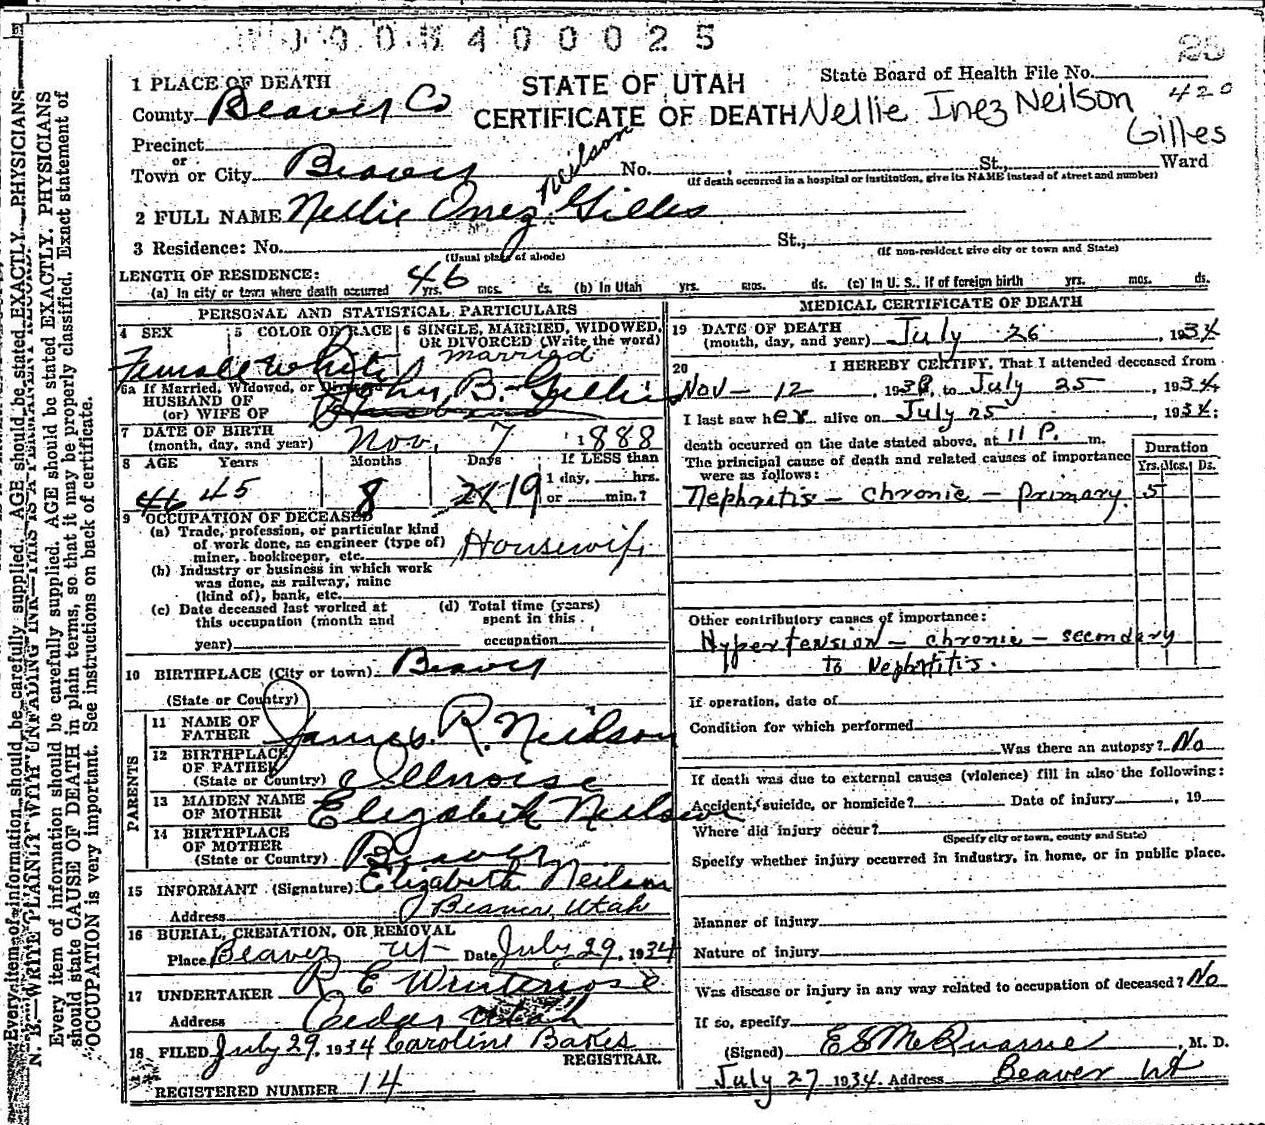 0 0 0 3 4 0 0 0 2 5
25
1 PLACE OF DEATH
STATE OF UTAH
State Board of Health File No.
420
County Beaver Co
CERTIFICATE OF DEATH Nellie Inez Neilson Gilles
Precinct
or
Town or City Beaver No. , St. Ward
(If death occurred in a hospital or institution, give its NAME instead of street and number)
Neilson
2 FULL NAME Nellie Onez Gilles
3 Residence: No. St.,
(Usual place of abode) (If non-resident give city or town and State)
LENGTH OF RESIDENCE:
(a) In city or town where death occurred 46 yrs. mos. ds. (b) In Utah yrs. mos. ds. (c) In U. S., if of foreign birth yrs. mos. ds.
PERSONAL AND STATISTICAL PARTICULARS
4 SEX 5 COLOR OR RACE 6 SINGLE, MARRIED, WIDOWED,
OR DIVORCED (Write the word)
Female White married
6a If Married, Widowed, or Divorced
HUSBAND OF
(or) WIFE OF John B. Gillis
7 DATE OF BIRTH
(month, day, and year) Nov. 7 1888
8 AGE Years Months Days If LESS than
1 day, hrs.
or min.?
46 45 8 21 19
9 OCCUPATION OF DECEASED
(a) Trade, profession, or particular kind
of work done, as engineer (type of)
miner, bookkeeper, etc. Housewife
(b) Industry or business in which work
was done, as railway, mine
(kind of), bank, etc.
(c) Date deceased last worked at
this occupation (month and
year)
(d) Total time (years)
spent in this
occupation
10 BIRTHPLACE (City or town) Beaver
(State or Country)
PARENTS
11 NAME OF
FATHER James R. Neilson
12 BIRTHPLACE
OF FATHER
(State or Country) Illnoise
13 MAIDEN NAME
OF MOTHER Elizabeth Neilson
14 BIRTHPLACE
OF MOTHER
(State or Country) Beaver
15 INFORMANT (Signature) Elizabeth Neilson
Address Beaver, Utah
16 BURIAL, CREMATION, OR REMOVAL
Place Beaver Ut Date July 29, 1934
17 UNDERTAKER R E Winterrose
Address Cedar Utah
18 FILED July 29, 1934 Caroline Bakes
REGISTRAR.
REGISTERED NUMBER 14
MEDICAL CERTIFICATE OF DEATH
19 DATE OF DEATH
(month, day, and year) July 26, 1934
20 I HEREBY CERTIFY, That I attended deceased from
Nov - 12, 193 , to July 25, 1934.
I last saw her alive on July 25, 1934;
death occurred on the date stated above, at 11 P. m.
The principal cause of death and related causes of importance
were as follows:
Duration
Yrs. Mos. Ds.
Nephritis - chronic - primary. 5
Other contributory causes of importance:
Hypertension - chronic - secondary
to Nephritis.
If operation, date of
Condition for which performed
Was there an autopsy? No
If death was due to external causes (violence) fill in also the following:
Accident, suicide, or homicide? Date of injury , 19
Where did injury occur?
(Specify city or town, county and State)
Specify whether injury occurred in industry, in home, or in public place.
Manner of injury
Nature of injury
Was disease or injury in any way related to occupation of deceased? No
If so, specify
(Signed) E S McQuarrie, M. D.
July 27 1934. Address Beaver Ut
N. B.—WRITE PLAINLY WITH UNFADING INK—THIS IS A PERMANENT RECORD.
Every item of information should be carefully supplied. AGE should be stated EXACTLY. PHYSICIANS
should state CAUSE OF DEATH in plain terms, so that it may be properly classified. Exact statement of
OCCUPATION is very important. See instructions on back of certificate.